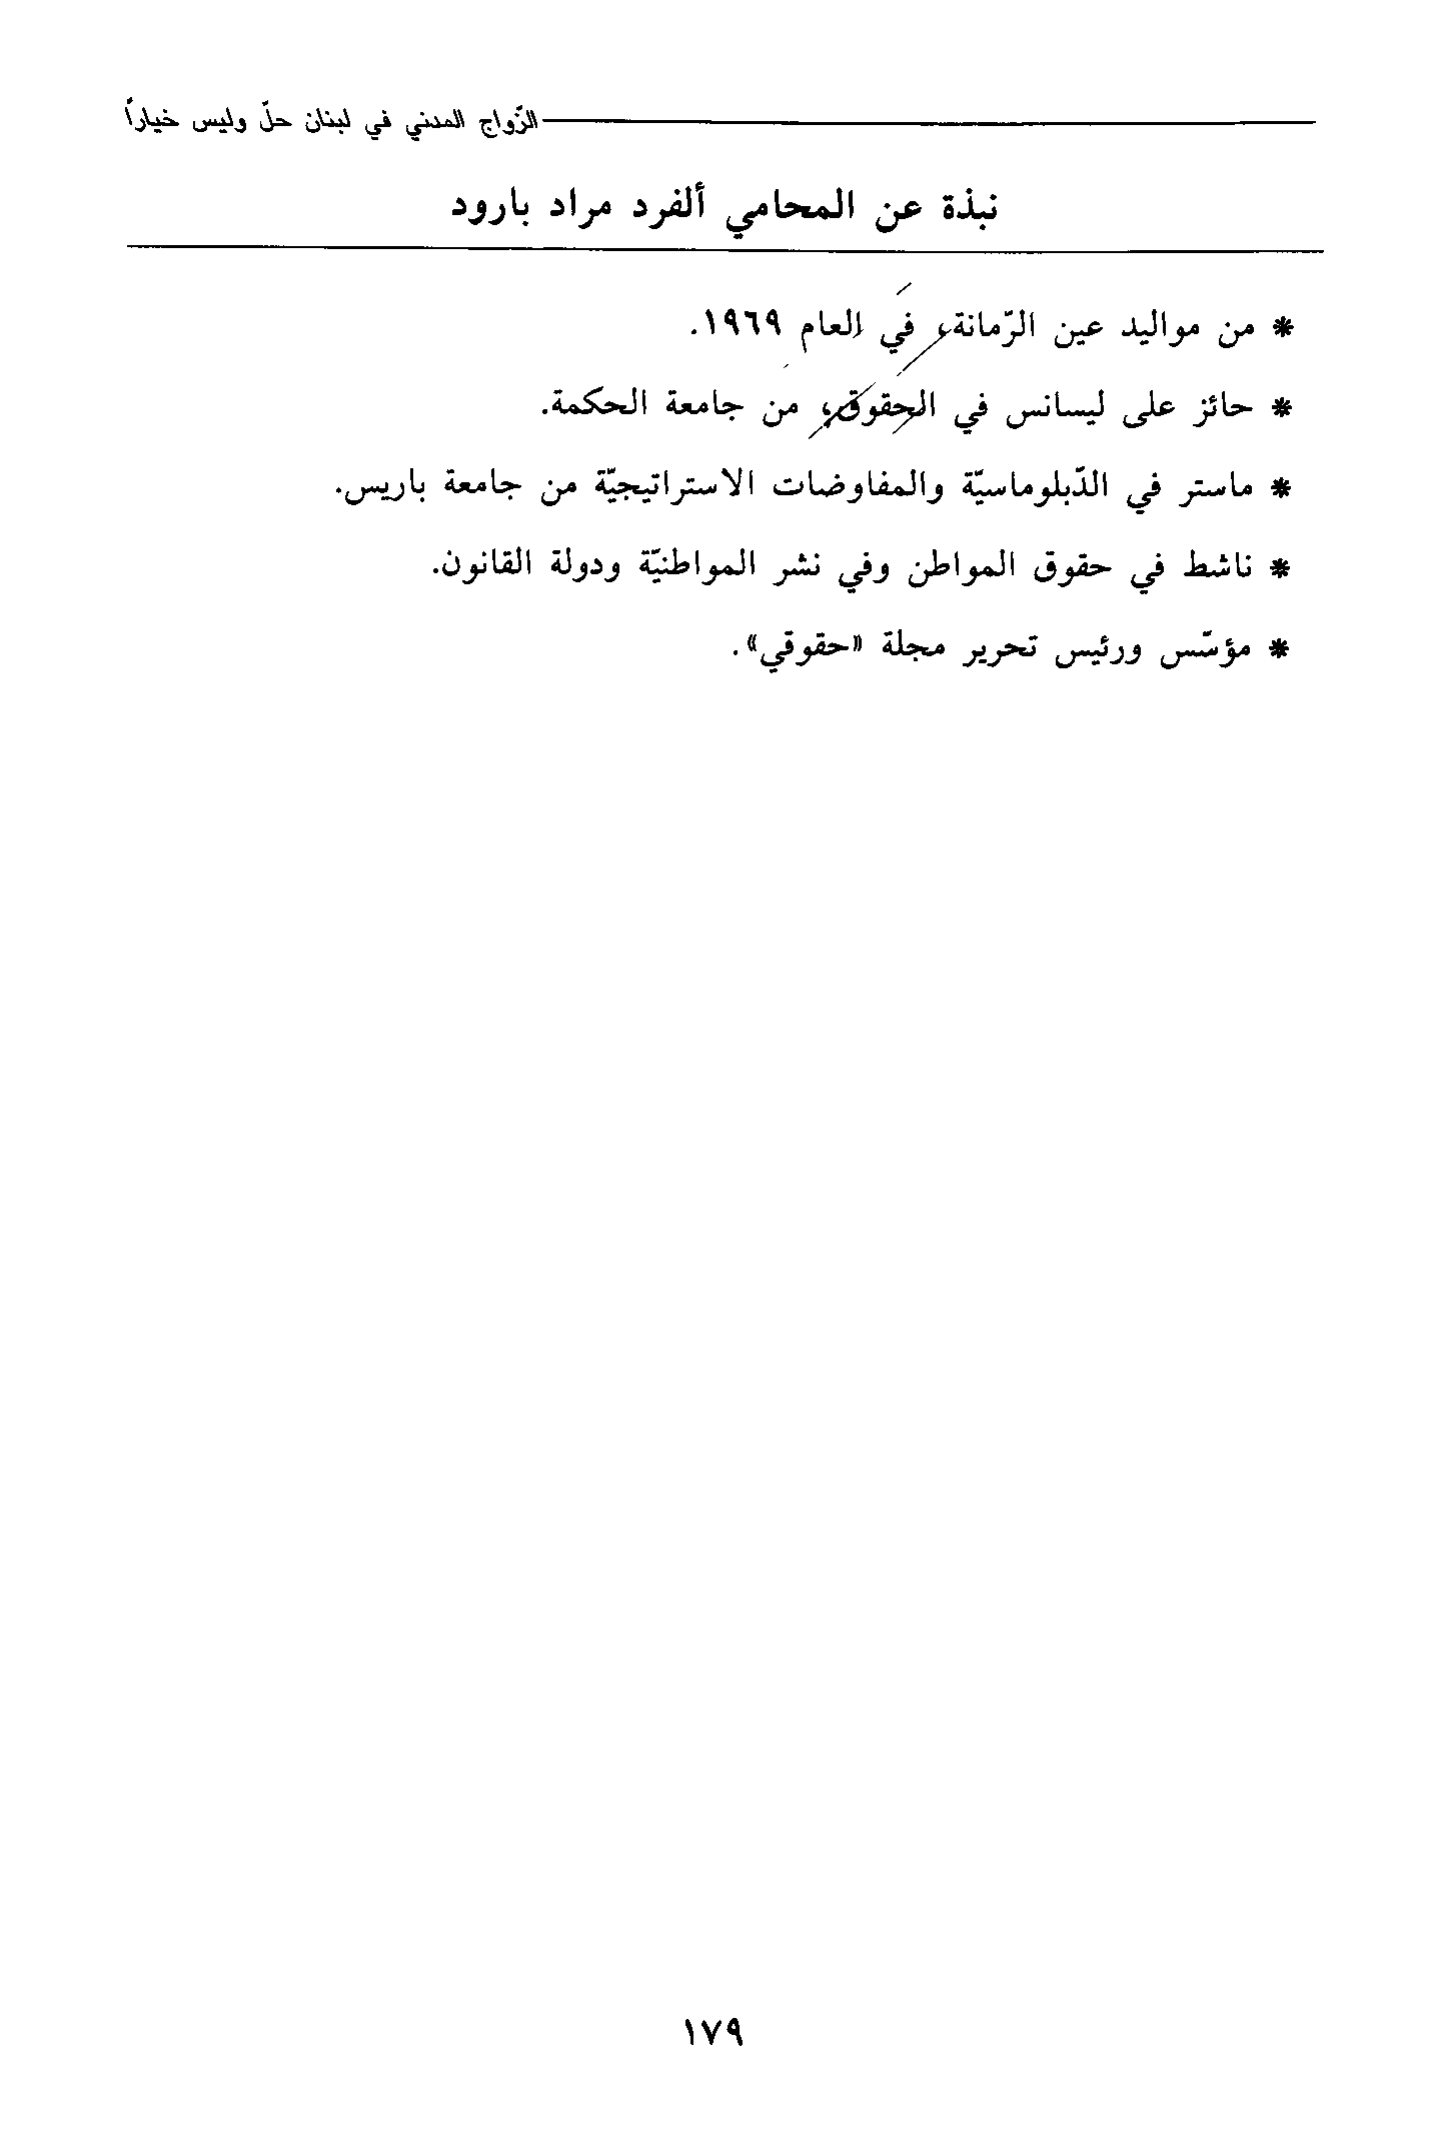 الزّواج المدني في لبنان حلّ وليس خياراً
نبذة عن المحامي ألفرد مراد بارود
* من مواليد عين الرّمانة، في العام ١٩٦٩.
* حائز على ليسانس في الحقوق، من جامعة الحكمة.
* ماستر في الدّبلوماسيّة والمفاوضات الاستراتيجيّة من جامعة باريس.
* ناشط في حقوق المواطن وفي نشر المواطنيّة ودولة القانون.
* مؤسّس ورئيس تحرير مجلة «حقوقي».
١٧٩